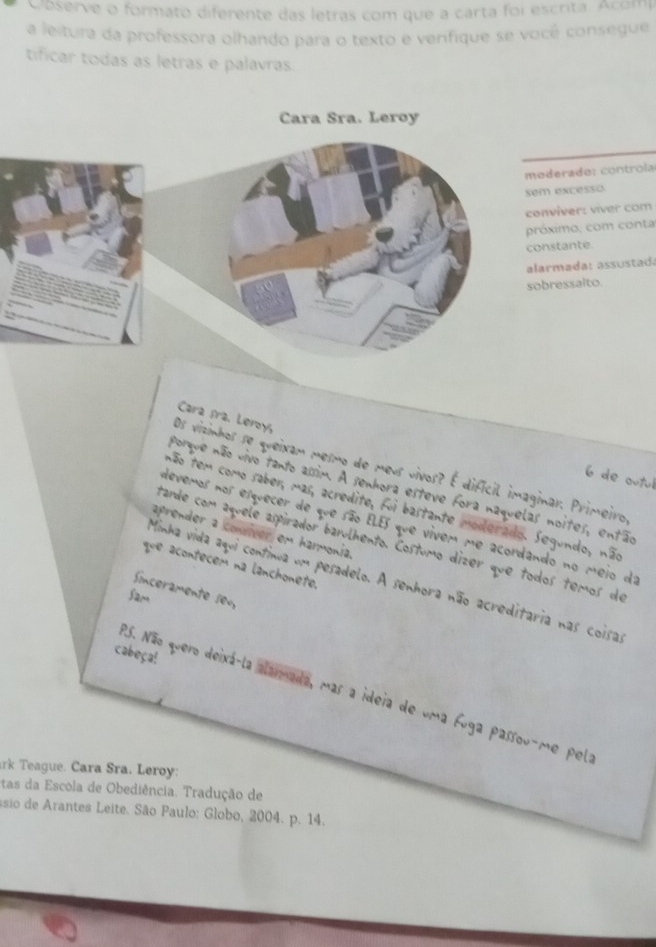 Observe o formato diferente das letras com que a carta foi escrita. Acomp
a leitura da professora olhando para o texto e verifique se você consegue
tificar todas as letras e palavras.
Cara Sra. Leroy
moderado: controla
sem excesso.
conviver: viver com
próximo, com conta
constante.
alarmada: assustada
sobressalto.
6 de outub
Cara sra. Leroy,
Os vizinhos se queixam mesmo de meus vivos? É difícil imaginar. Primeiro,
porque não vivo tanto assim. A senhora esteve fora naquelas noites, então
não tem como saber, mas, acredite, fui bastante moderado. Segundo, não
devemos nos esquecer de que são ELES que vivem me acordando no meio da
tarde com aquele aspirador barulhento. Costumo dizer que todos temos de
aprender a conviver em harmonia.
Minha vida aqui continua um pesadelo. A senhora não acreditaria nas coisas
que acontecem na lanchonete.
Sinceramente seu,
Sam
P.S. Não quero deixá-la alarmada, mas a ideia de uma fuga passou-me pela
cabeça!
ark Teague. Cara Sra. Leroy:
rtas da Escola de Obediência. Tradução de
ssio de Arantes Leite. São Paulo: Globo, 2004. p. 14.